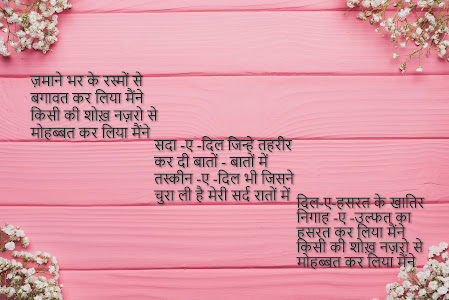 ज़माने भर के रस्मों से
बगावत कर लिया मैंने
किसी की शोख़ नज़रो से
मोहब्बत कर लिया मैंने
सदा -ए -दिल जिन्हे तहरीर
कर दी बातों - बातों में
तस्कीन -ए -दिल भी जिसने
चुरा ली है मेरी सर्द रातों में
दिल-ए-हसरत के खातिर
निगाह -ए -उल्फत का
हसरत कर लिया मैंने
किसी की शोख़ नज़रो से
मोहब्बत कर लिया मैंने